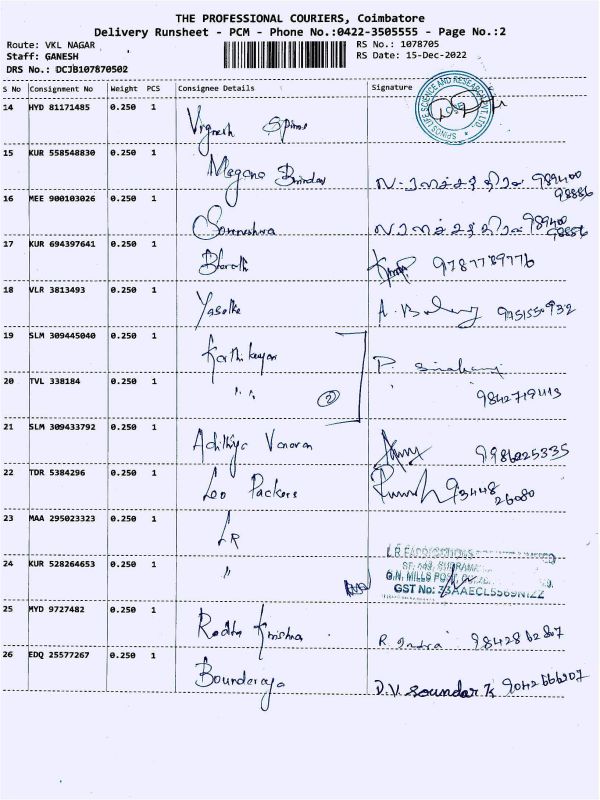 THE PROFESSIONAL COURIERS, Coimbatore
Delivery Runsheet - PCM - Phone No.:0422-3505555 - Page No.:2
Route: VKL NAGAR RS No.: 1078705
Staff: GANESH RS Date: 15-Dec-2022
DRS No.: DCJB107870502
S No Consignment No Weight PCS Consignee Details Signature
14 HYD 81171485 0.250 1 Vignesh Spinos
SPINOS LIFE SCIENCE AND RESEARCH PVT LTD
15 KUR 558548830 0.250 1 989400
98886
16 MEE 900103026 0.250 1 989400
98886
17 KUR 694397641 0.250 1 Bharath 9787789776
18 VLR 3813493 0.250 1
19 SLM 309445040 0.250 1 Karthikeyan P.
20 TVL 338184 0.250 1 " " 2
21 SLM 309433792 0.250 1
22 TDR 5384296 0.250 1 Leo Packers 93448
26080
23 MAA 295023323 0.250 1 LR
24 KUR 528264653 0.250 1 "
G.N. MILLS POST
GST No: 33AAECL5569N1ZZ
25 MYD 9727482 0.250 1 Radha Krishna R. Indra 9842862807
26 EDQ 25577267 0.250 1 D.V. Soundar 9042666207